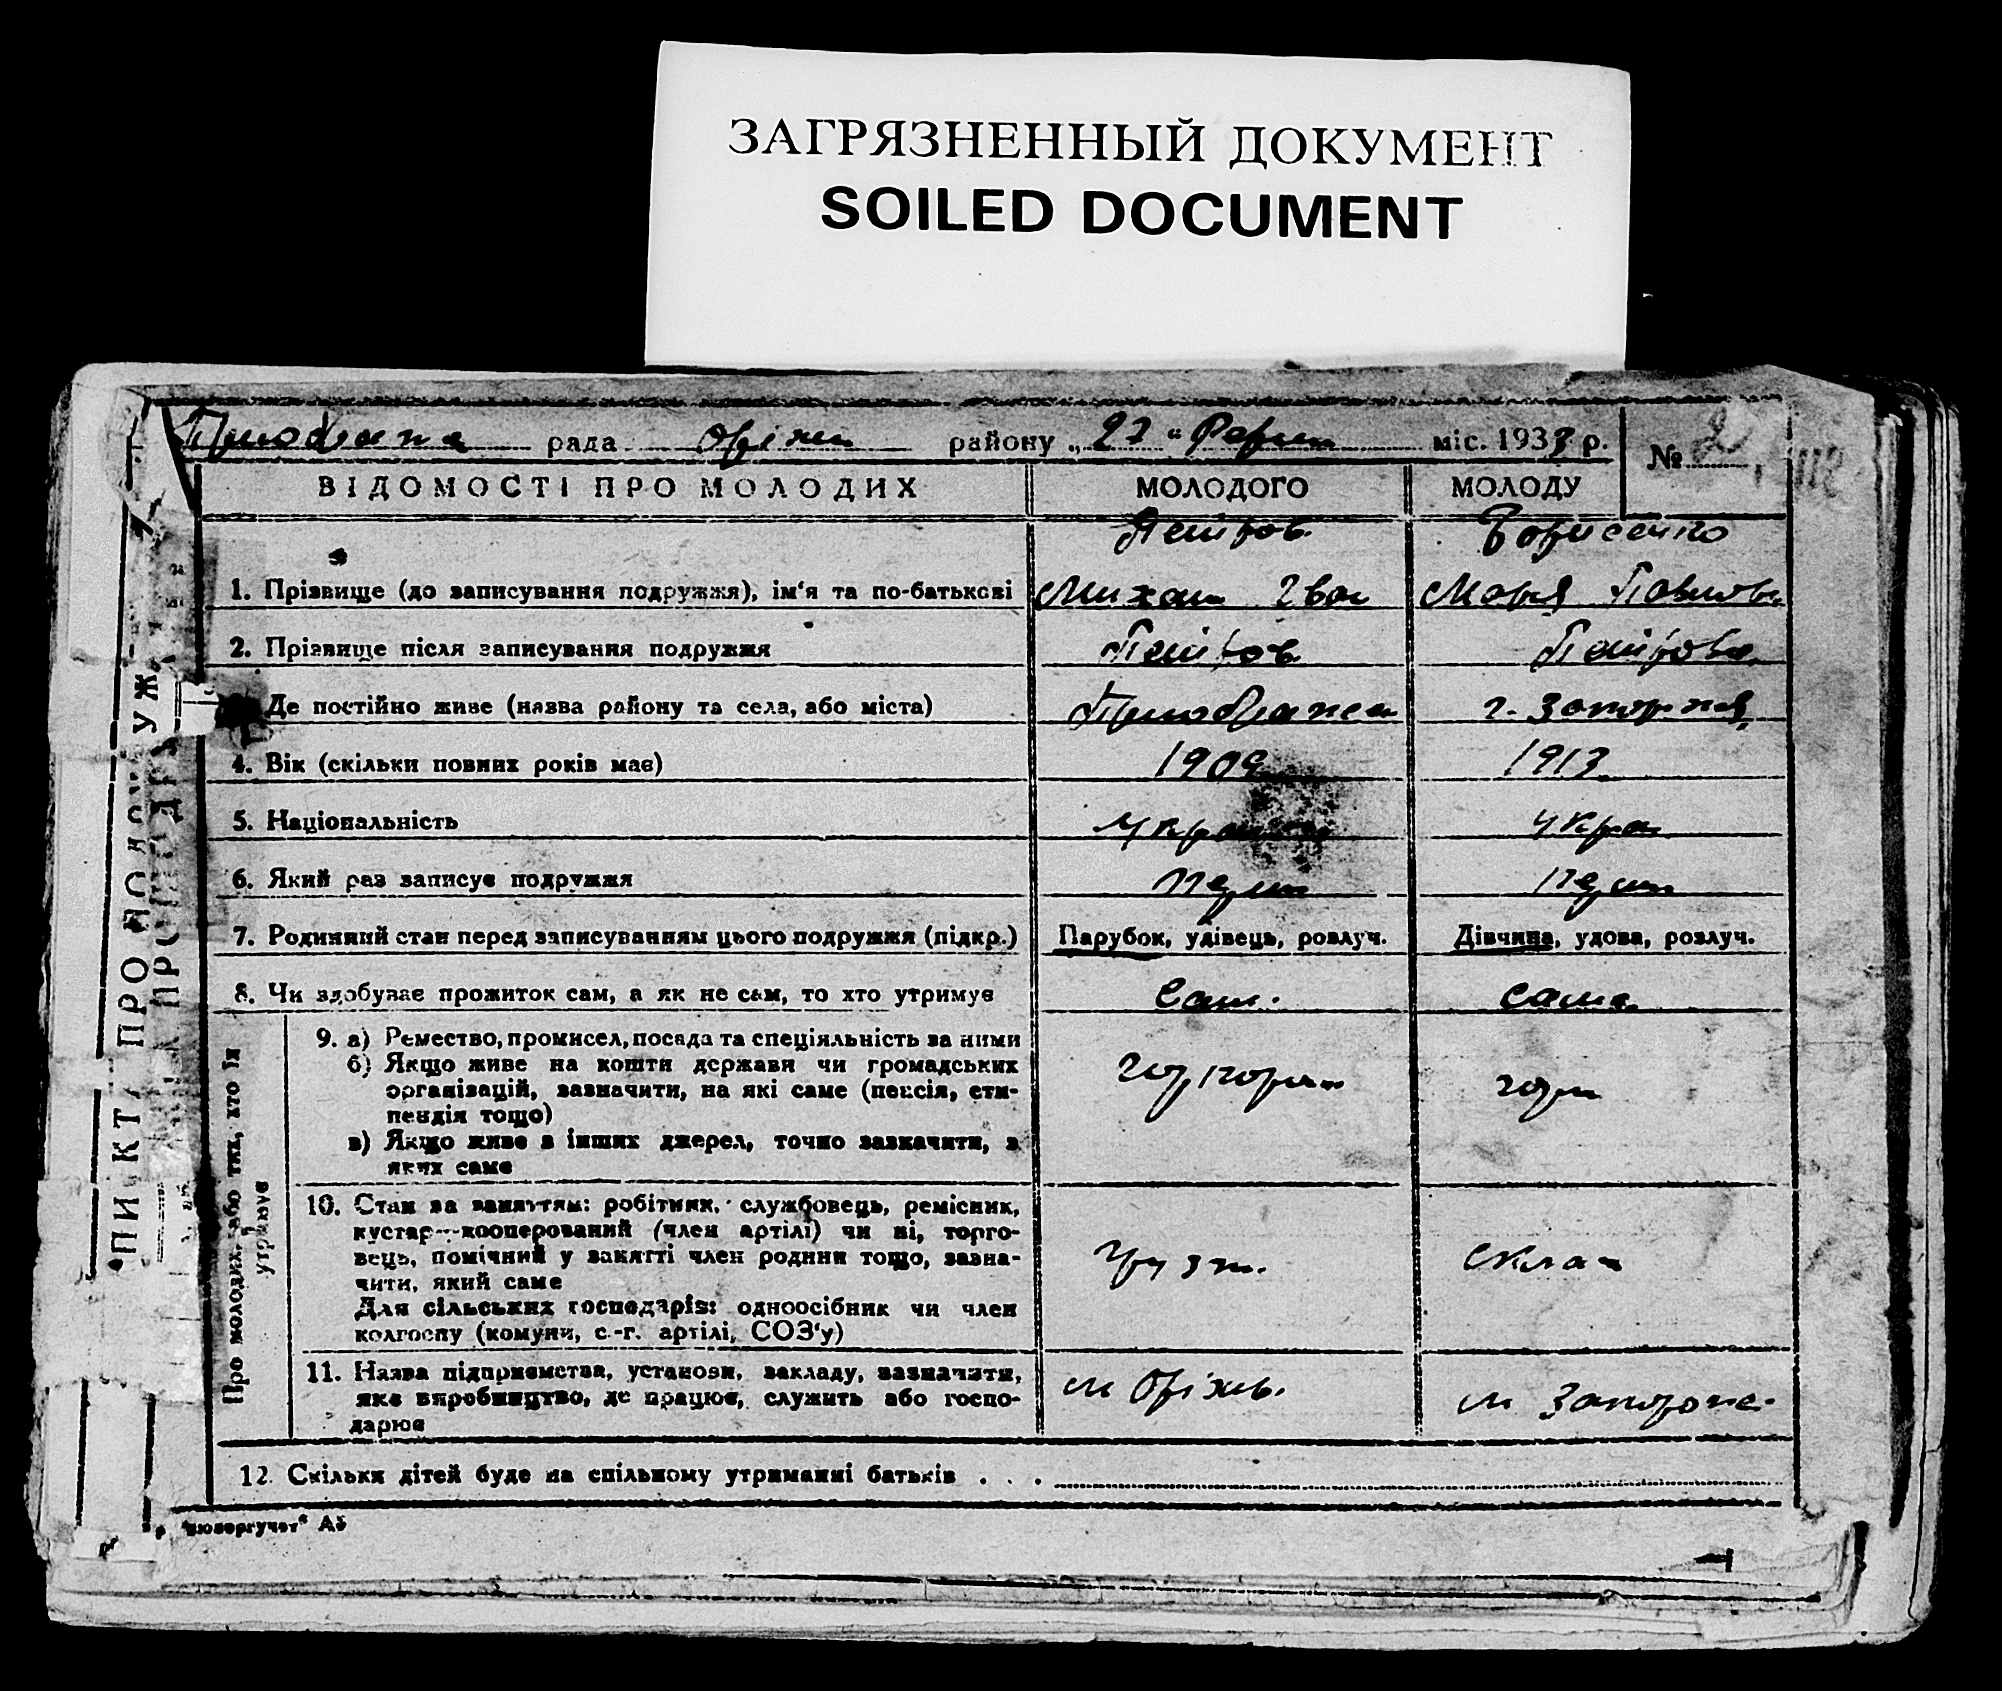 ЗАГРЯЗНЕННЫЙ ДОКУМЕНТ
SOILED DOCUMENT
рада район у „27“ міс. 1933 р. №
ВІДОМОСТІ ПРО МОЛОДИХ МОЛОДОГО МОЛОДУ
Петров Борисенко
1. Прізвище (до записування подружжя), ім'я та по-батькові Михаил Иван Мария Павлов
2. Прізвище після записування подружжя Петров Петрова
Де постійно живе (назва району та села, або міста) г.
4. Вік (скільки повних років має) 1909 1913
5. Національність Укра
6. Який раз записує подружжя
7. Родинний стан перед записуванням цього подружжя (підкр.) Парубок, удівець, розлуч. Дівчина, удова, розлуч.
8. Чи здобуває прожиток сам, а як не сам, то хто утримує Сам. сама
Про молодих або тих, хто їх утримує
9. а) Ремество, промисел, посада та спеціяльність за ними
б) Якщо живе на кошти держави чи громадських
організацій, зазначити, на які саме (пенсія, сти-
пендія тощо)
в) Якщо живе з інших джерел, точно зазначити, з
яких саме
10. Стан за заняттям: робітник, службовець, ремісник,
кустар—кооперований (член артілі) чи ні, торго-
вець, помічний у занятті член родини тощо, зазна-
чити, який саме
Для сільських господарів: одноосібник чи член
колгоспу (комуни, с.-г. артілі, СОЗ'у)
11. Назва підприємства, установи, закладу, зазначити,
яке виробництво, де працює, служить або госпо-
дарює
м Оріхів. м Запорож.
12. Скільки дітей буде на спільному утриманні батьків . . .